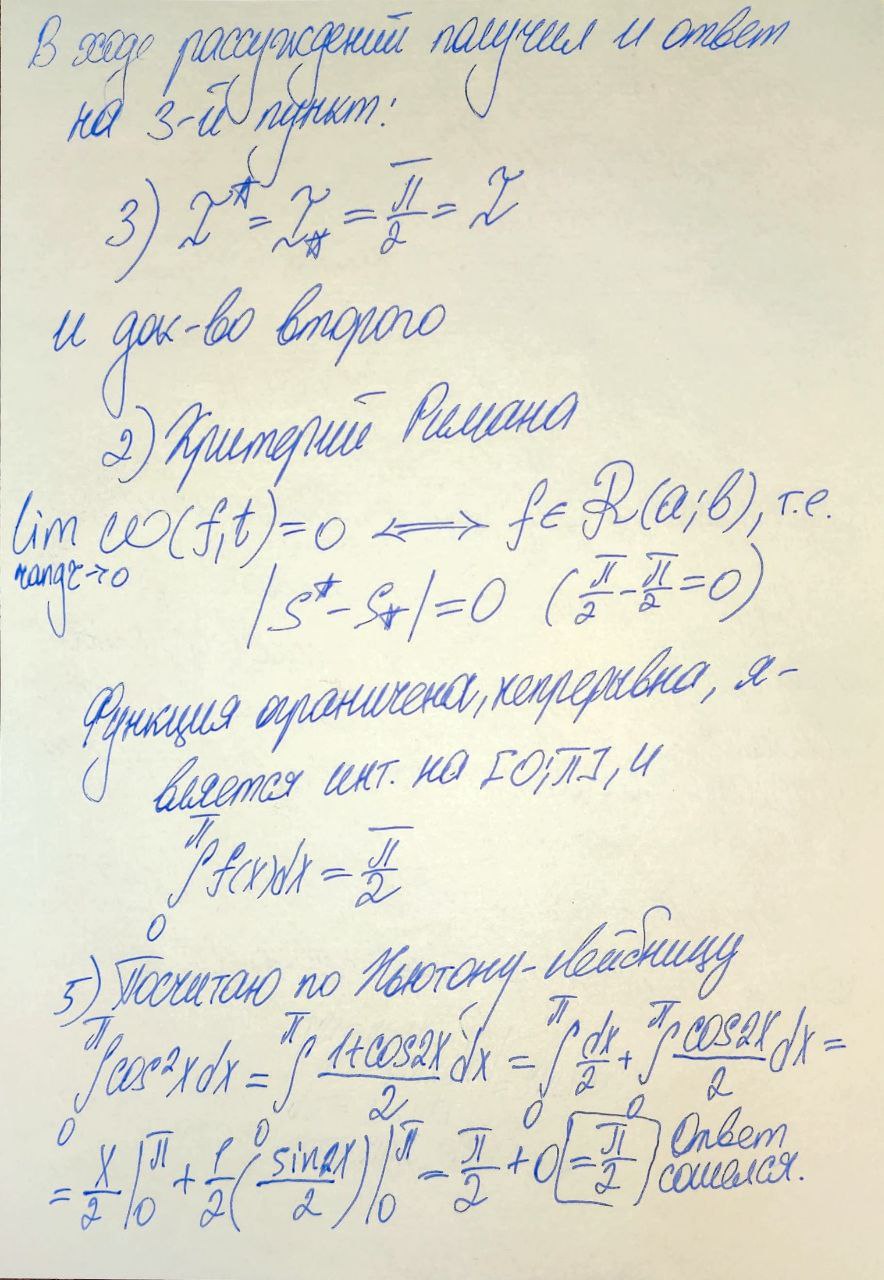 В ходе рассуждений получил и ответ
на 3-й пункт:
3) I* = I* = π/2 = I
и док-во второго
2) Критерий Римана
lim ω(f,t) = 0 ⟺ f ∈ R(a;b), т.е.
rangτ→0
|S* - S*| = 0 (π/2 - π/2 = 0)
Функция ограничена, непрерывна, я-
вляется инт. на [0;π], и
∫₀^π f(x)dx = π/2
5) Посчитаю по Ньютону-Лейбницу
∫₀^π cos²x dx = ∫₀^π (1+cos2x)/2 dx = ∫₀^π dx/2 + ∫₀^π cos2x/2 dx =
= x/2 |₀^π + 1/2 (sin2x/2) |₀^π = π/2 + 0 = π/2 Ответ
сошелся.